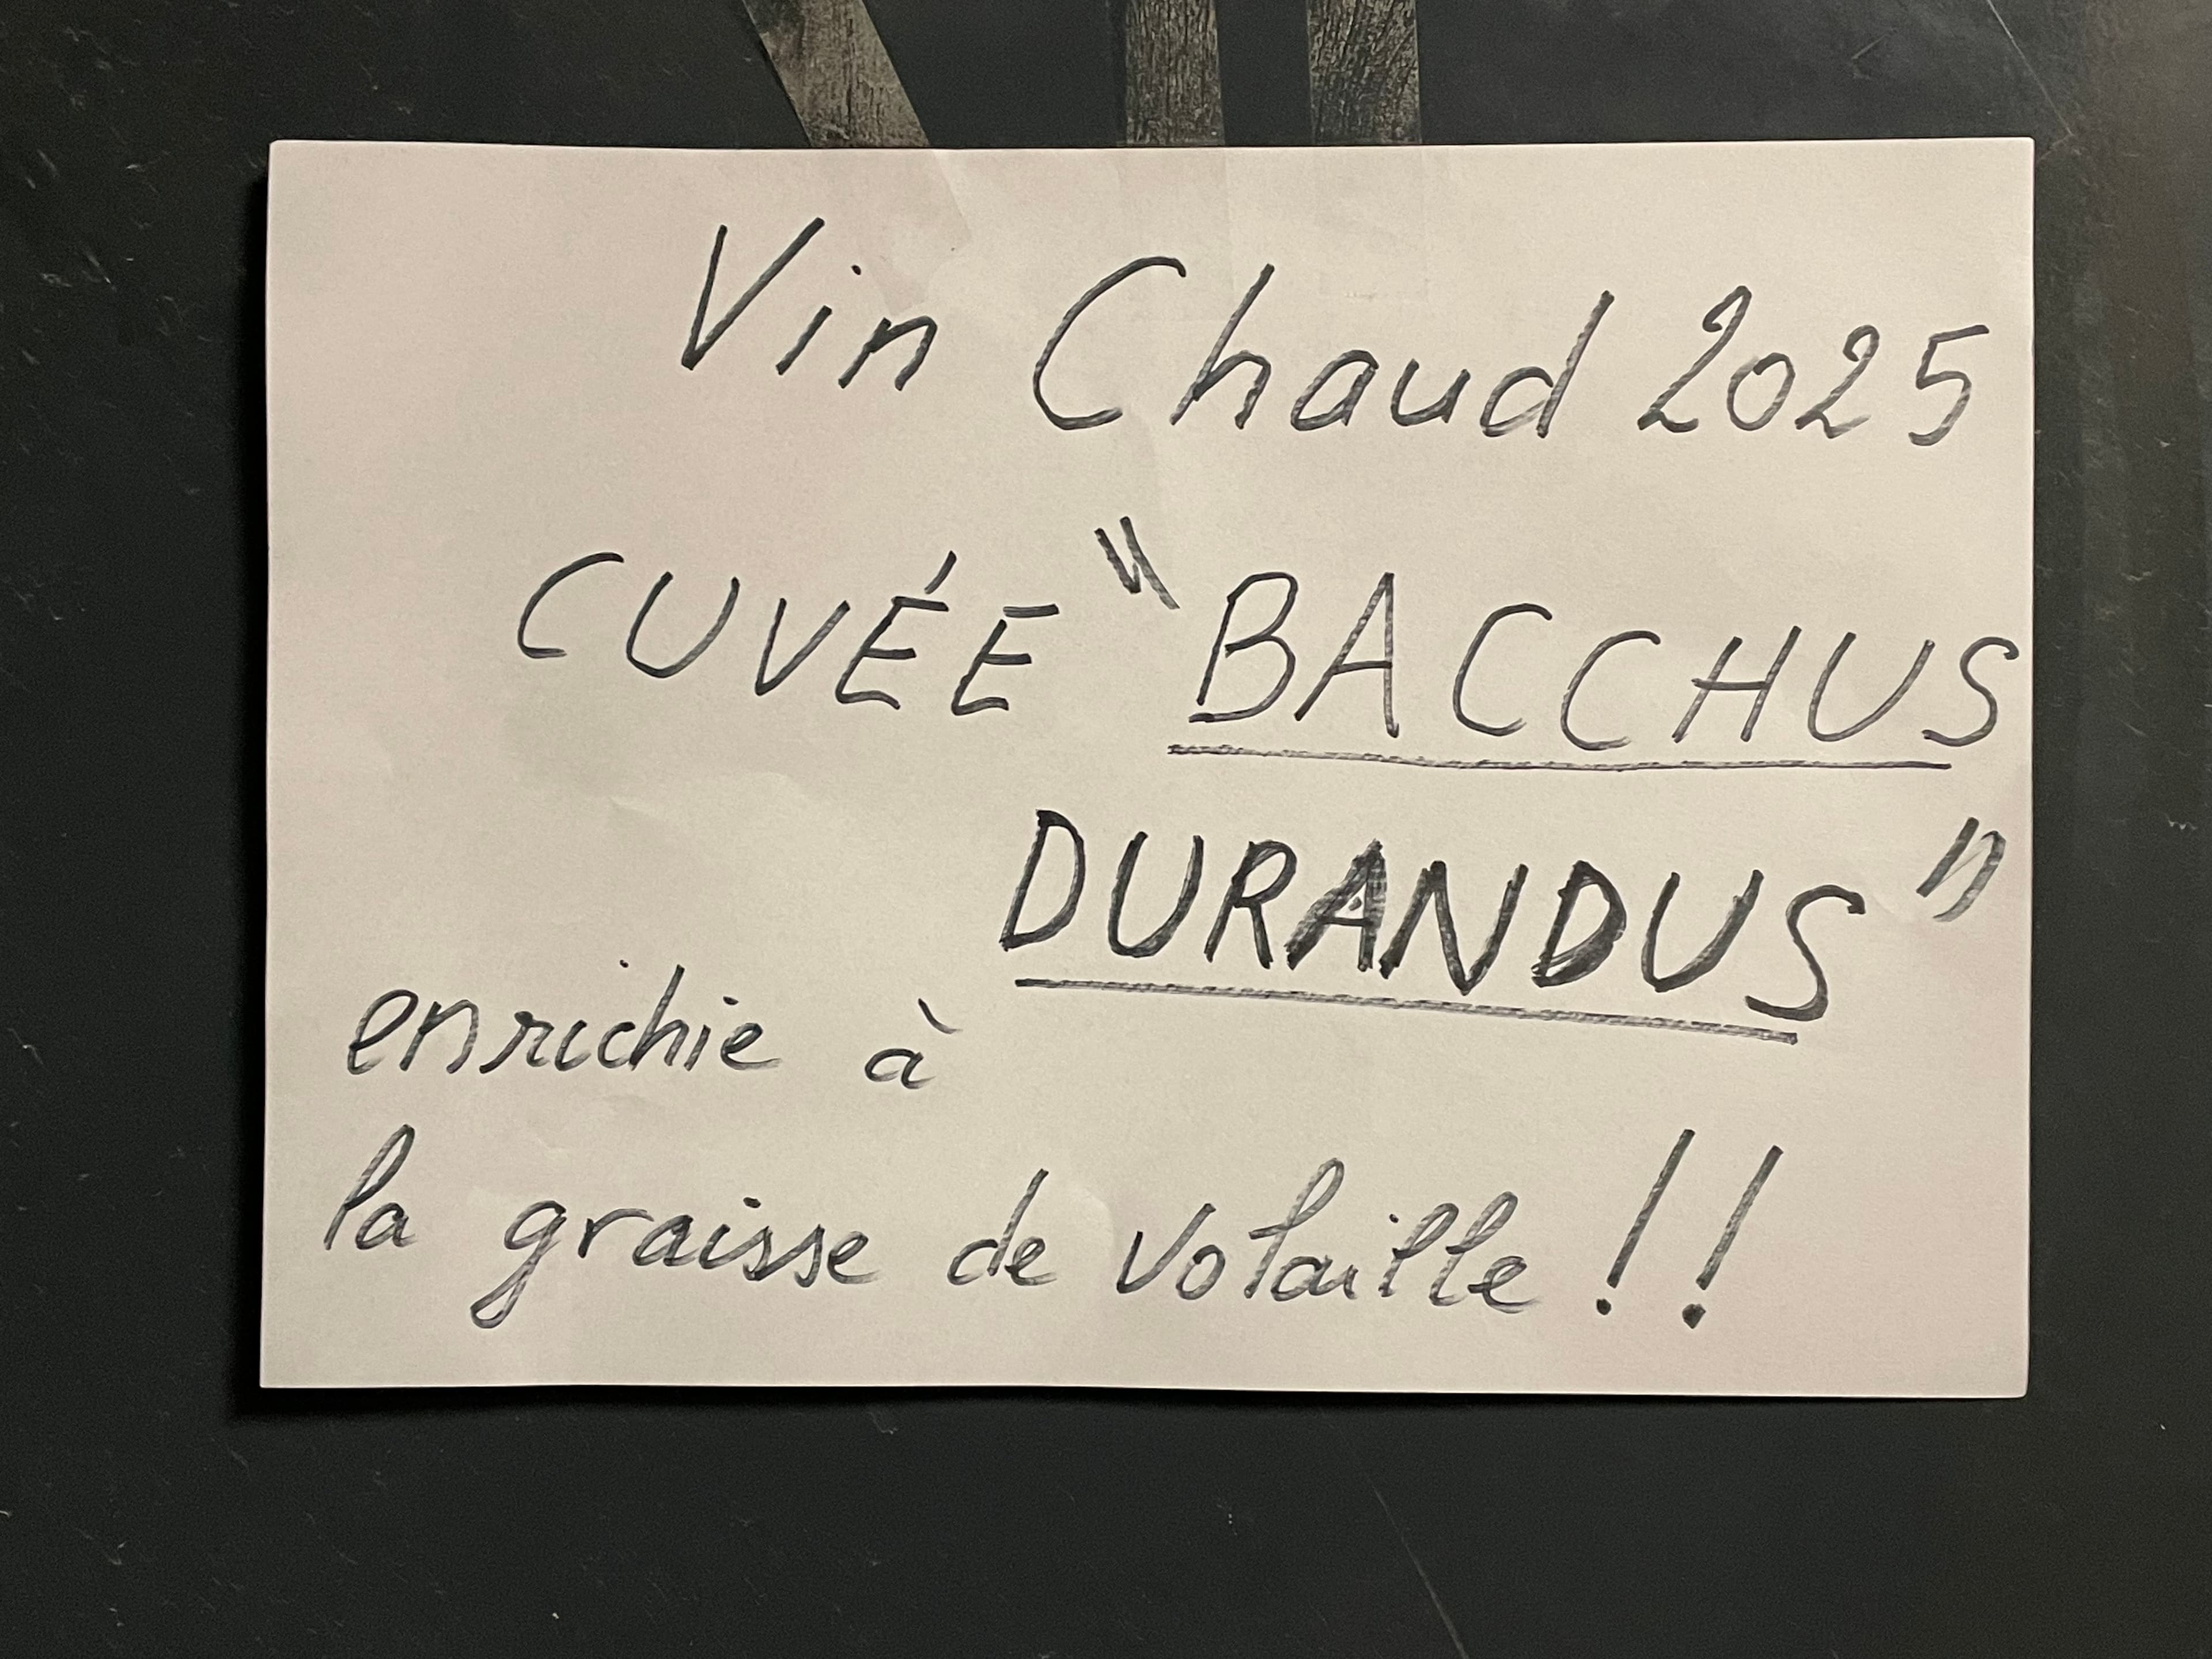 Vin Chaud 2025
CUVÉE "BACCHUS
DURANDUS"
enrichie à
la graisse de volaille !!